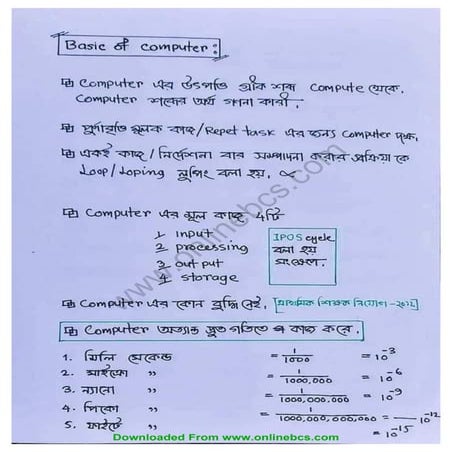 Basic of computer:
Computer এর উৎপত্তি গ্রীক শব্দ compute থেকে.
Computer শব্দের অর্থ গণনা কারী.
পুনরাবৃত্তি মূলক কাজ/Repet task এর জন্য Computer দক্ষ.
একই কাজ/নির্দেশনা বার সম্পাদনা করার প্রক্রিয়া কে
Loop/Loping লুপিং বলা হয়.
Computer এর মূল কাজ 4টি
1 input
2 processing
3 out put
4 storage
IPOS cycle
বলা হয়
সংক্ষেপে.
Computer এর কোন বুদ্ধি নেই. [প্রাথমিক শিক্ষক নিয়োগ-২০১২]
Computer অত্যন্ত দ্রুত গতিতে কাজ করে.
1. মিলি সেকেন্ড = 1/1000 = 10^-3
2. মাইক্রো ,, = 1/1000,000 = 10^-6
3. ন্যানো ,, = 1/1000,000,000 = 10^-9
4. পিকো ,, = 1/1000,000,000,000 = 10^-12
5. ফাইটো ,, = 10^-15
Downloaded From www.onlinebcs.com
www.onlinebcs.com